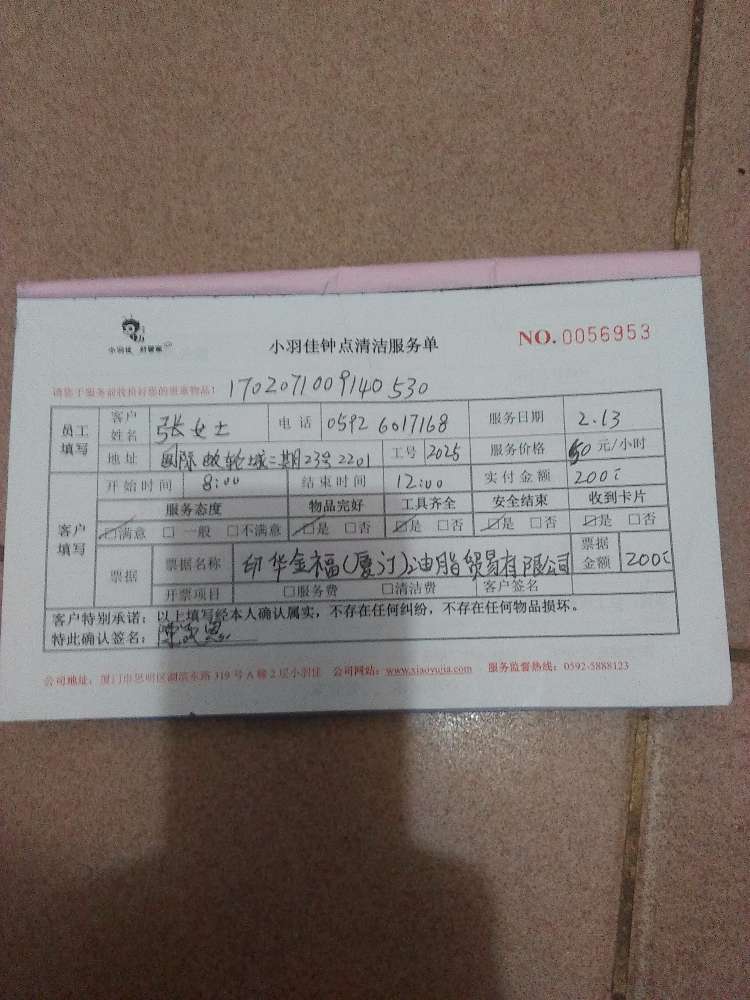 小羽佳 好管家
小羽佳钟点清洁服务单
NO. 0056953
请您于服务前收拾好您的贵重物品!
1702071009140530
员工填写 客户姓名 张女士 电话 0592 6017168 服务日期 2.13
地址 国际邮轮城二期23号2201 工号 2025 服务价格 50 元/小时
客户填写 开始时间 8:00 结束时间 12:00 实付金额 200元
服务态度 物品完好 工具齐全 安全结束 收到卡片
☑满意 □ 一般 □不满意 ☑是 □否 ☑是 □否 ☑是 □否 ☑是 □否
票据 票据名称 印华金福(厦门)油脂贸易有限公司 票据金额 200元
开票项目 □服务费 □清洁费 客户签名
客户特别承诺:以上填写经本人确认属实,不存在任何纠纷,不存在任何物品损坏。
特此确认签名:
公司地址:厦门市思明区湖滨东路 319 号 A 幢 2 层小羽佳 公司网站:www.xiaoyujia.com 服务监督热线:0592-5888123